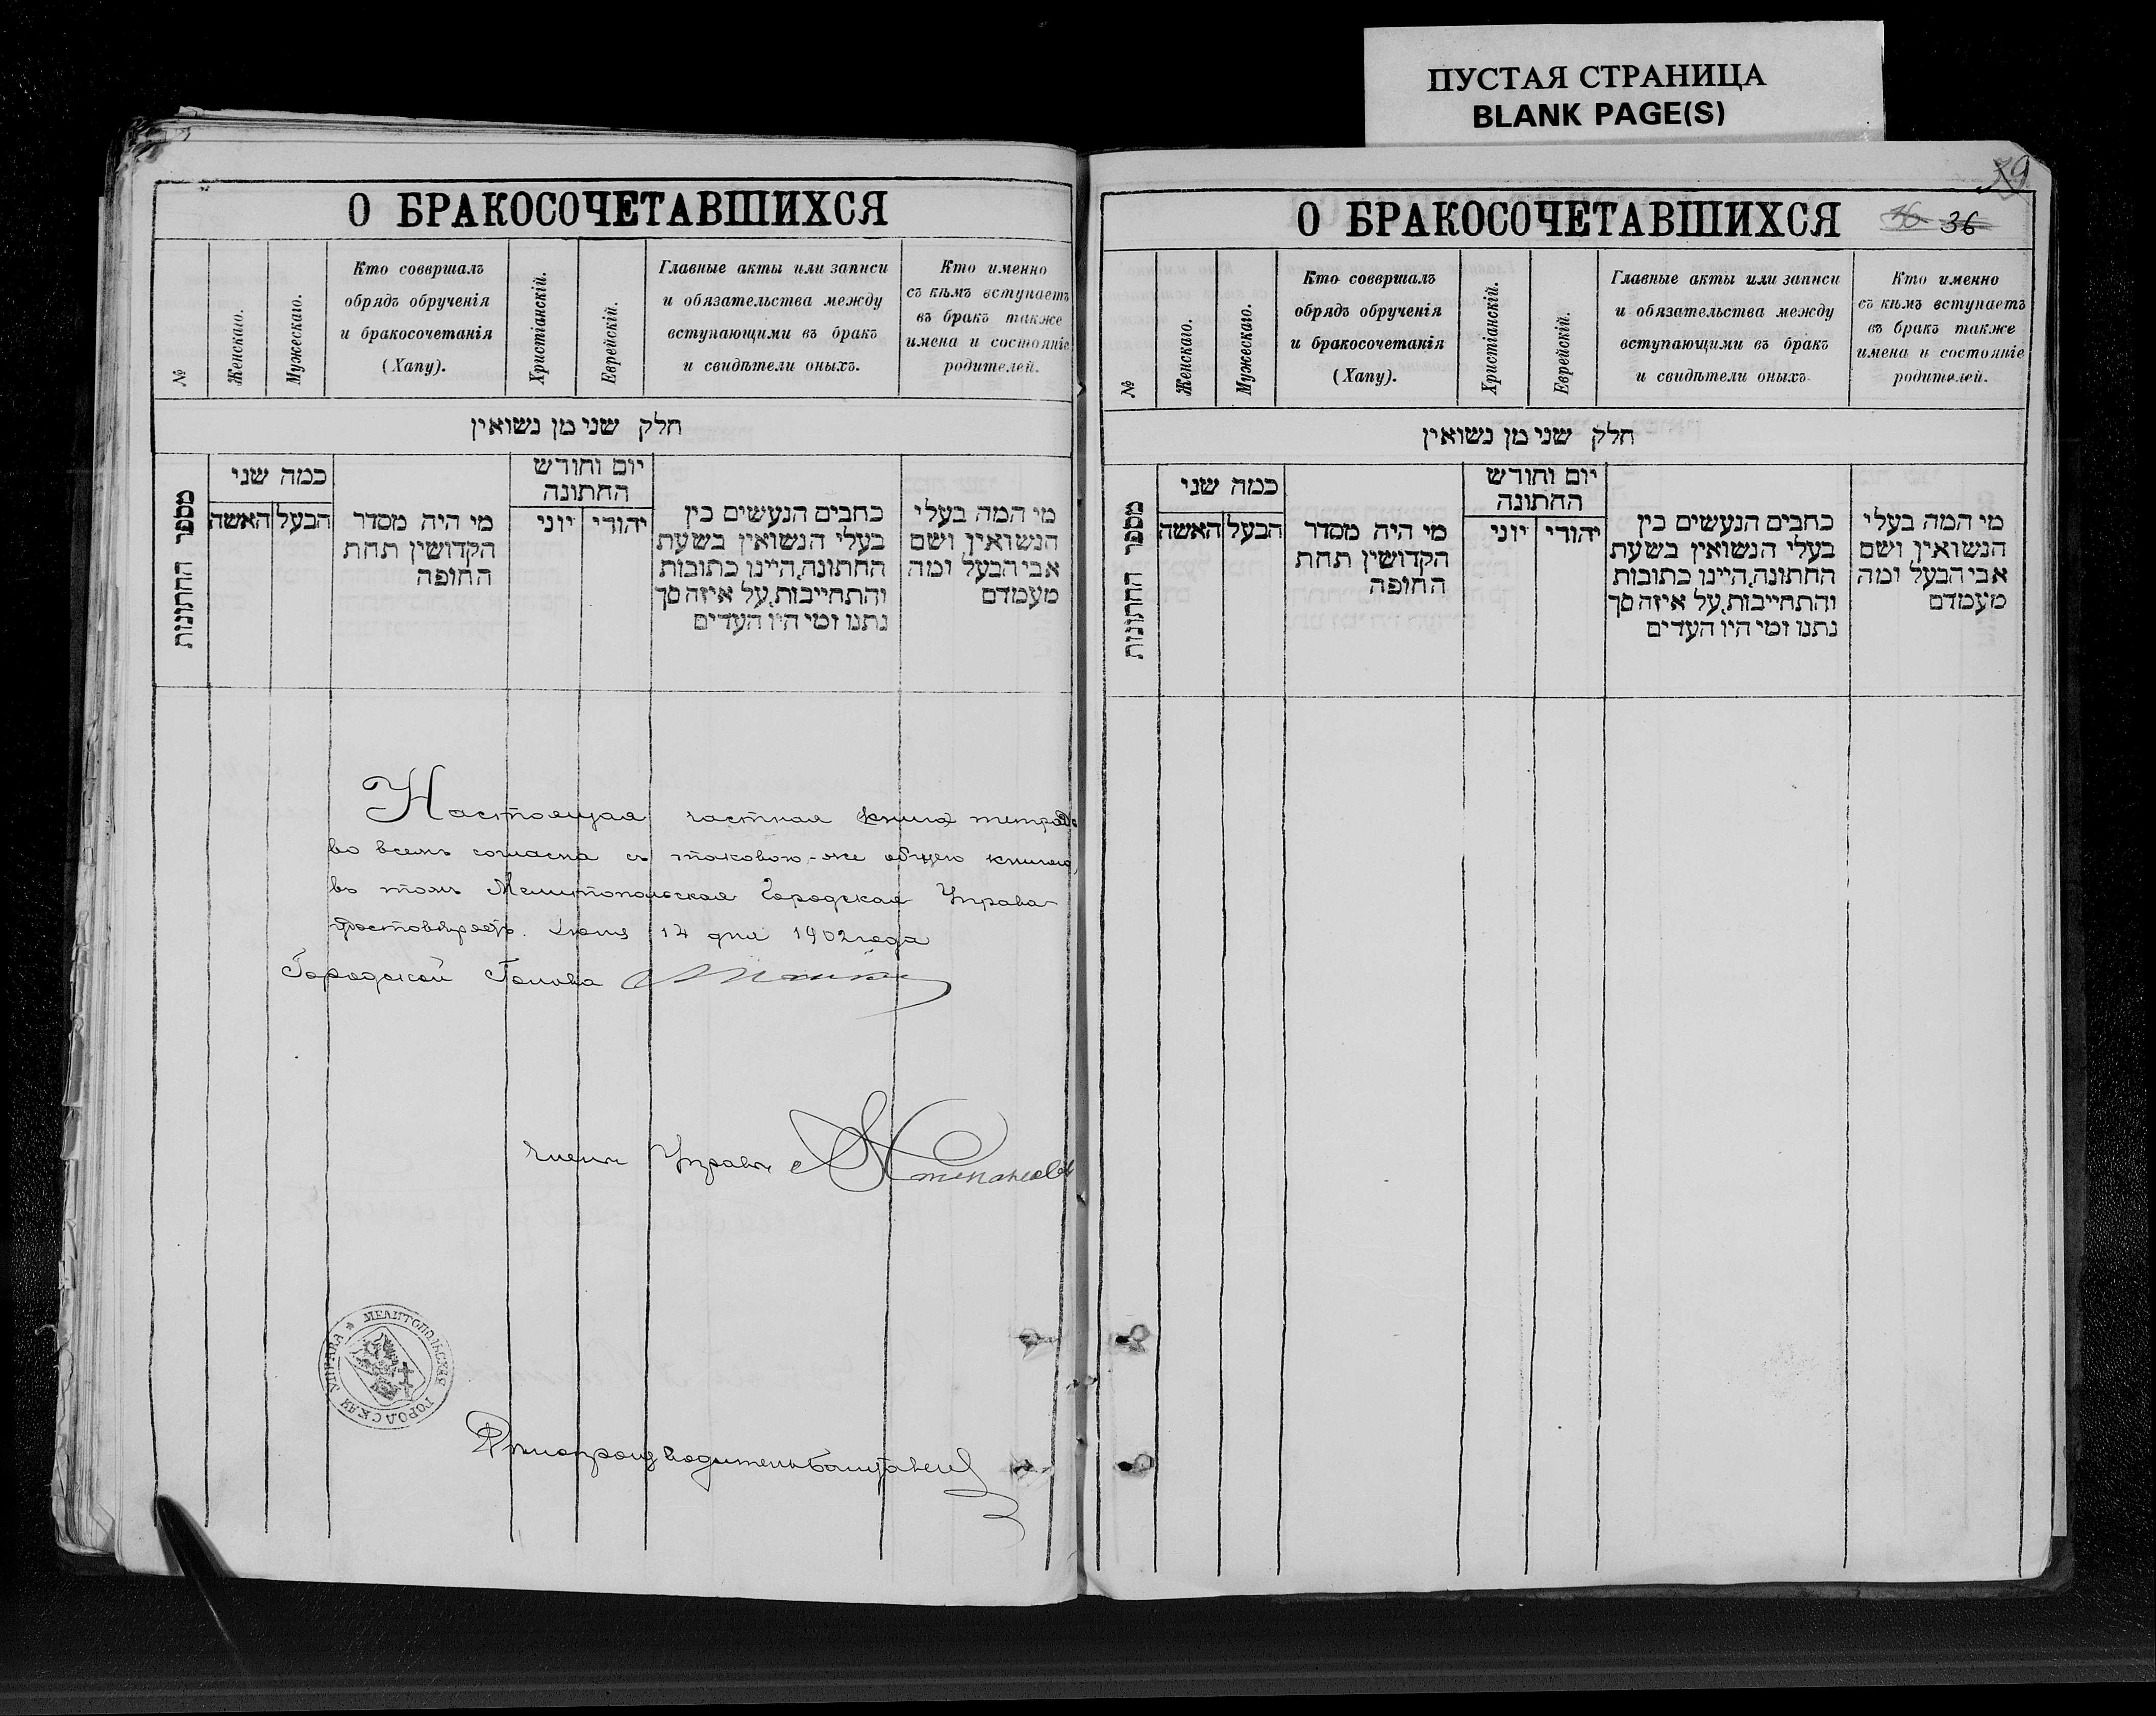 ПУСТАЯ СТРАНИЦА
BLANK PAGE(S)
О БРАКОСОЧЕТАВШИХСЯ
№
Женскаго.
Мужескаго.
Кто совершалъ
обрядъ обрученія
и бракосочетанія
(Хапу).
Христіанскій.
Еврейскій.
Главные акты или записи
и обязательства между
вступающими въ бракъ
и свидѣтели оныхъ.
Кто именно
съ кѣмъ вступаетъ
въ бракъ также
имена и состояніе
родителей.
חלק שני מן נשואין
מספר החתונות
כמה שני
האשה
הבעל
מי היה מסדר
הקדושין תחת
החופה
יום וחודש
החתונה
יוני
יהודי
כתבים הנעשים בין
בעלי הנשואין בשעת
החתונה,היינו כתובות
והתחייבות,על איזה סך
נתנו ומי היו העדים
מי המה בעלי
הנשואין ושם
אבי הבעל ומה
מעמדם
Настоящая частная книга тетрадь
во всемъ согласна съ таковою-же общею книгою,
въ томъ Мелитопольская Городская Управа
удостовѣряетъ. Іюня 14 дня 1902 года
Городской Голова
Членъ Управы
МЕЛИТОПОЛЬСКАЯ ГОРОДСКАЯ УПРАВА
Дѣлопроизводитель
39
О БРАКОСОЧЕТАВШИХСЯ
36 36
№
Женскаго.
Мужескаго.
Кто совершалъ
обрядъ обрученія
и бракосочетанія
(Хапу).
Христіанскій.
Еврейскій.
Главные акты или записи
и обязательства между
вступающими въ бракъ
и свидѣтели оныхъ.
Кто именно
съ кѣмъ вступаетъ
въ бракъ также
имена и состояніе
родителей.
חלק שני מן נשואין
מספר החתונות
כמה שני
האשה
הבעל
מי היה מסדר
הקדושין תחת
החופה
יום וחודש
החתונה
יוני
יהודי
כתבים הנעשים בין
בעלי הנשואין בשעת
החתונה,היינו כתובות
והתחייבות,על איזה סך
נתנו ומי היו העדים
מי המה בעלי
הנשואין ושם
אבי הבעל ומה
מעמדם